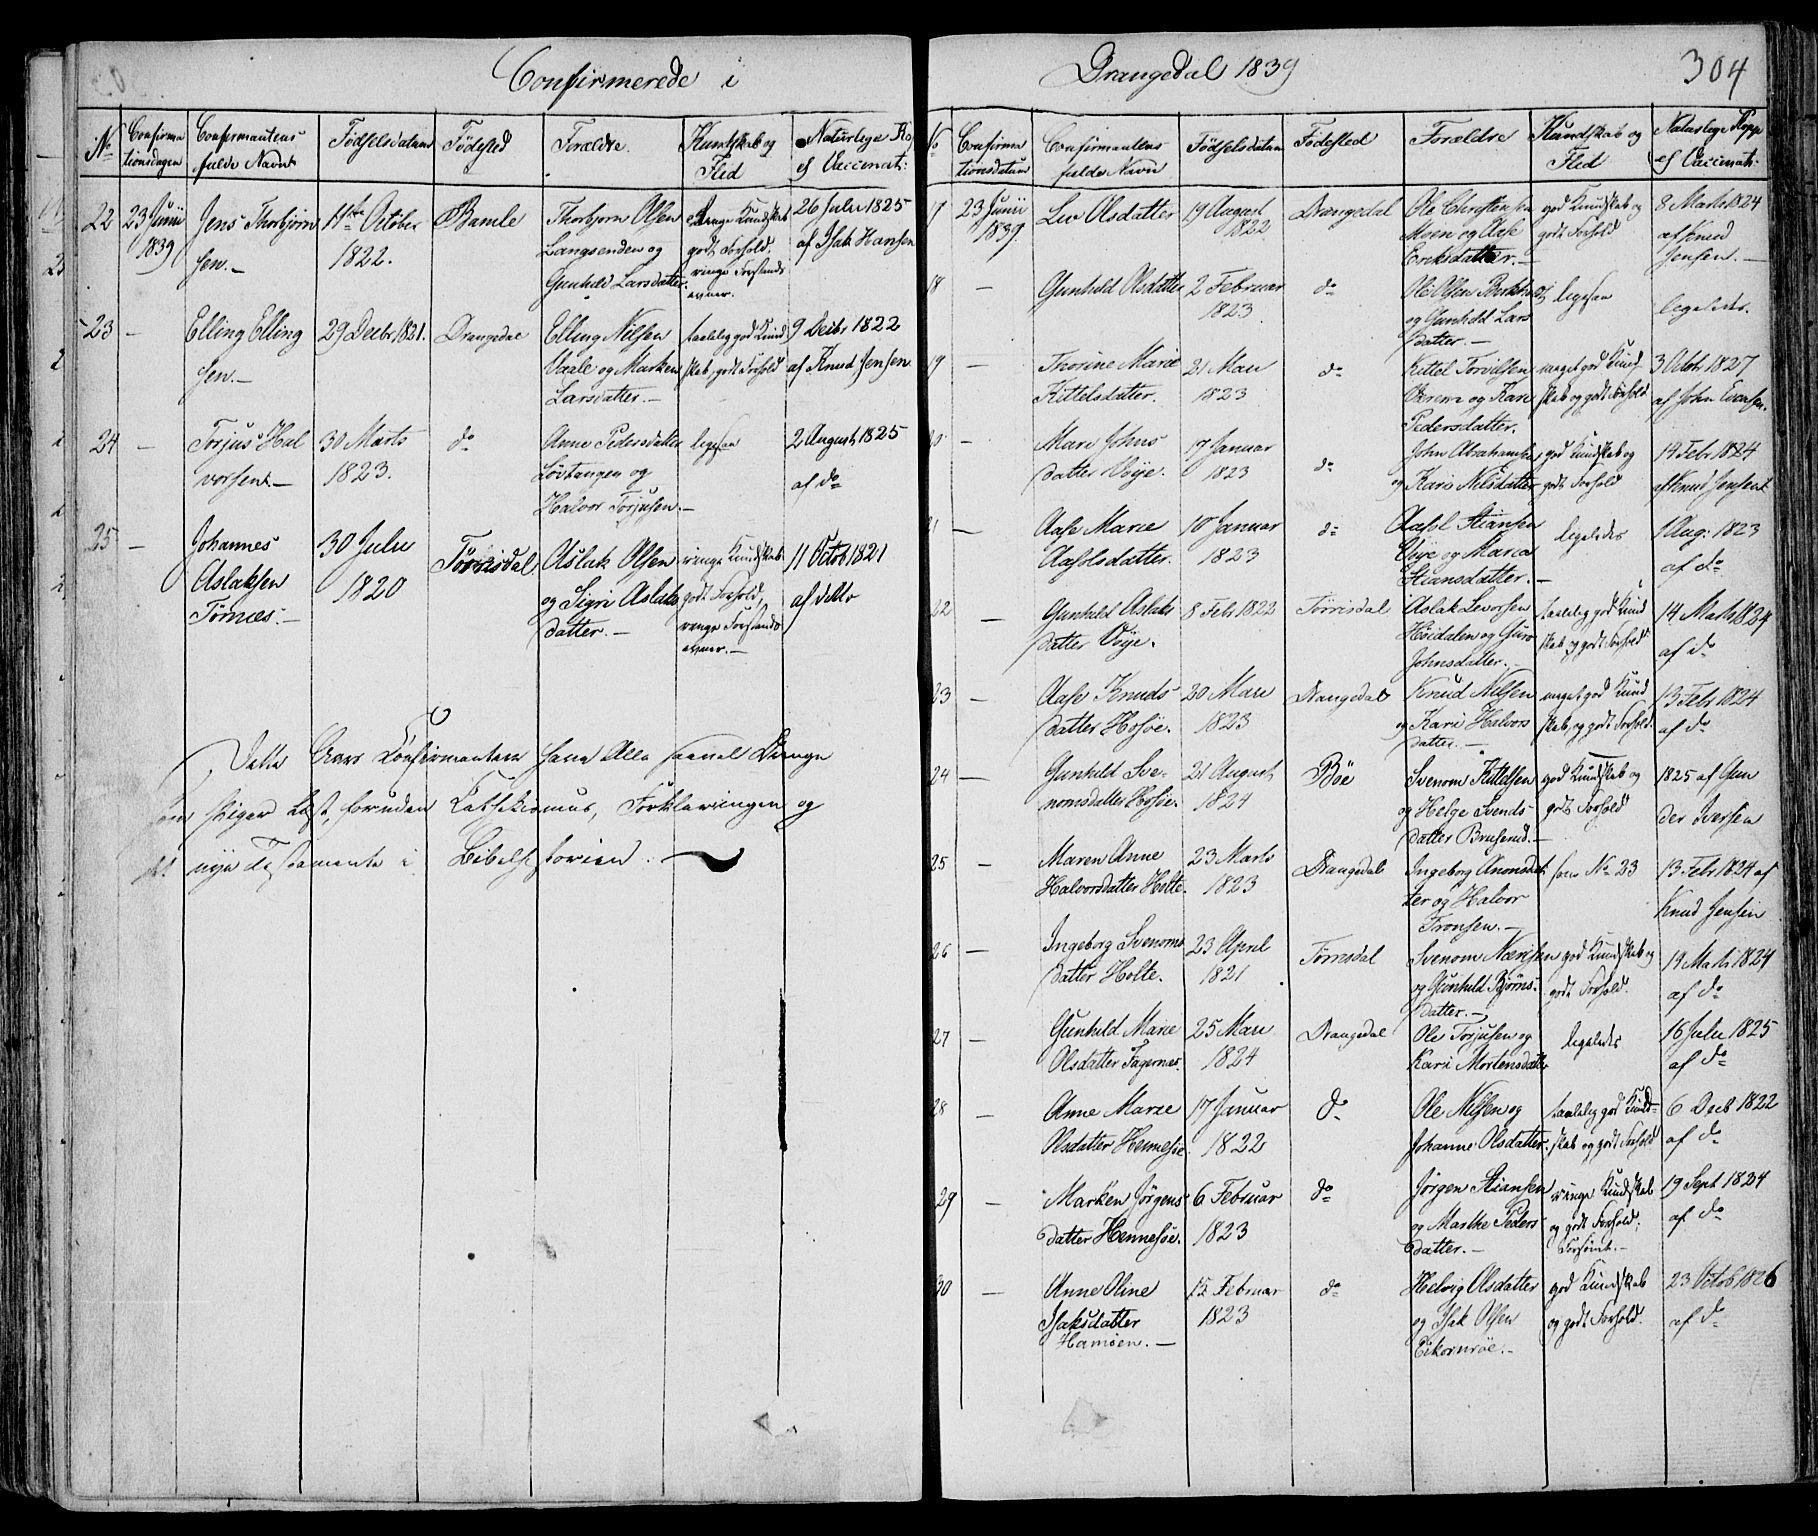 Confirmerede i
No
Confirma
tionsdagen
Confirmantens
fulde Navn
Fødselsdatum
Fødested
Forældre.
Kundskab og
Flid
Naturlige Ko
el Vaccinat:
22
23 Junii
1839
Jens Thorbjørn
sen.—
11te October
1822.
Bamle
Thorbjørn Olsen
Langsenden og
Gunhild Larsdatter.
ringe Kundskab
godt Forhold.
ringe Forstands
evner.
26 Julii 1825
af Isak Hansen
23
—
Elling Elling
sen.—
29 Decbr 1821.
Drangedal
Elling Nilsen
Vaale og Marken
Larsdatter.—
taalelig god Kund
skab, godt Forhold
9 Decbr 1822
af Knud Jensen
24
—
Torjus Hal
vorsen.—
30 Marts
1823.
do
Anne Pedersdatter
Løvtangen og
Halvor Torjusen.—
ligesaa
2 August 1825
af do
25
—
Johannes
Aslaksen
Tørnes.—
30 Julii
1820
Tørrisdal
Aslak Olsen
og Sigri Aslaks
datter.—
ringe Kundskab
godt Forhold,
ringe Forstands
evner.—
11 Octob 1821
af ditto
Dette Aars Confirmanter have Alle saavel Drenge
som Piger læst, foruden Catekismus, Forklaringen og
det nye Testamente i Bibelhistorien.
Drangedal 1839
304
No
Confirma
tionsdatum
Confirmantens
fulde Navn
Fødselsdatum
Fødested
Forældre
Kundskab og
Flid
Naturlige Kopp
el Vaccinat:
17
23 Junii
1839.
Liv Olsdatter
19 August
1822
Drangedal
Ole Christensen
Moen og Aase
Eriksdatter.—
god Kundskab og
godt Forhold
8 Marts 1824
af Knud
Jensen.—
18
—
Gunhild Olsdatter
2 Februar
1823
do
Ole Olsen
og Gunhild Lars
datter.—
ligesaa
ligeledes.
19
—
Thorine Marie
Kittelsdatter.
21 Mai
1823
do
Kittel Torvilsen
og Kari
Pedersdatter.
meget god Kund
skab og godt Forhold
3 Octbr 1827
af John Evensen.
20
—
Mari Johns
datter Voje.
17 Januar
1823
do
John Abrahamsen
og Kari Nilsdatter
god Kundskab og
godt Forhold
14 Feb 1824
af Knud Jensen
21
—
Aase Marie
Aassolsdatter.
10 Januar
1823
do
Aassol Stiansen
Voje og Maria
Stiansdatter.—
ligeledes
1 Aug: 1823
af do
22
—
Gunhild Aslaks
datter Voje.
8 Feb 1822
Tørrisdal
Aslak Levorsen
Høidalen og Guro
Johnsdatter.—
taalelig god Kund
skab og godt Forhold
14 Marts 1824
af do
23
—
Aase Knuds
datter Hosøe.
20 Mai
1823
Drangedal
Knud Nilsen
og Kari Halvors
datter.—
meget god Kund
skab, og godt Forhold
13 Feb 1824
af do
24
—
Gunhild Sve-
nomsdatter Hosøe.
21 August
1824
Bøe
Svenom Kittelsen
og Helge Svends
datter Bruserud.—
god Kundskab og
godt Forhold
1825 af Gun
der Iversen
25
—
Maren Anne
Halvorsdatter Holte.
23 Marts
1823
Drangedal
Ingeborg Anonsdat
ter og Halvor
Tronsen.—
som No 23
13 Feb 1824 af
Knud Jensen
26
—
Ingeborg Svenoms
datter Holte.
23 April
1821
Tørrisdal
Svenom Nærisen
og Gunhild Bjørns-
datter.—
god Kundskab og
godt Forhold.
19 Marts 1824
af do
27
—
Gunhild Marie
Olsdatter Fagernæs.
25 Mai
1824
Drangedal
Ole Torjusen og
Kari Mortensdatter
ligeledes
16 Julii 1825
af do
28
—
Anne Marie
Olsdatter Hennesøe.
17 Januar
1822
do
Ole Nilsen og
Johanne Olsdatter.
taalelig god Kund-
skab og godt Forhold
6 Decb 1822
af do
29
—
Marken Jørgens
datter Hennesøe.
6 Februar
1823
do
Jørgen Stiansen
og Marthe Peders
datter.—
ringe Kundskab
og godt Forhold.
Forsømt.—
19 Sept 1824
af do
30
—
Anne Oline
Isaksdatter
Hamøen.—
15 Februar
1823
do
Helvig Olsdatter
og Isak Olsen
Eikornrøe.—
god Kundskab
og godt Forhold.
23 Octob 1826
af do